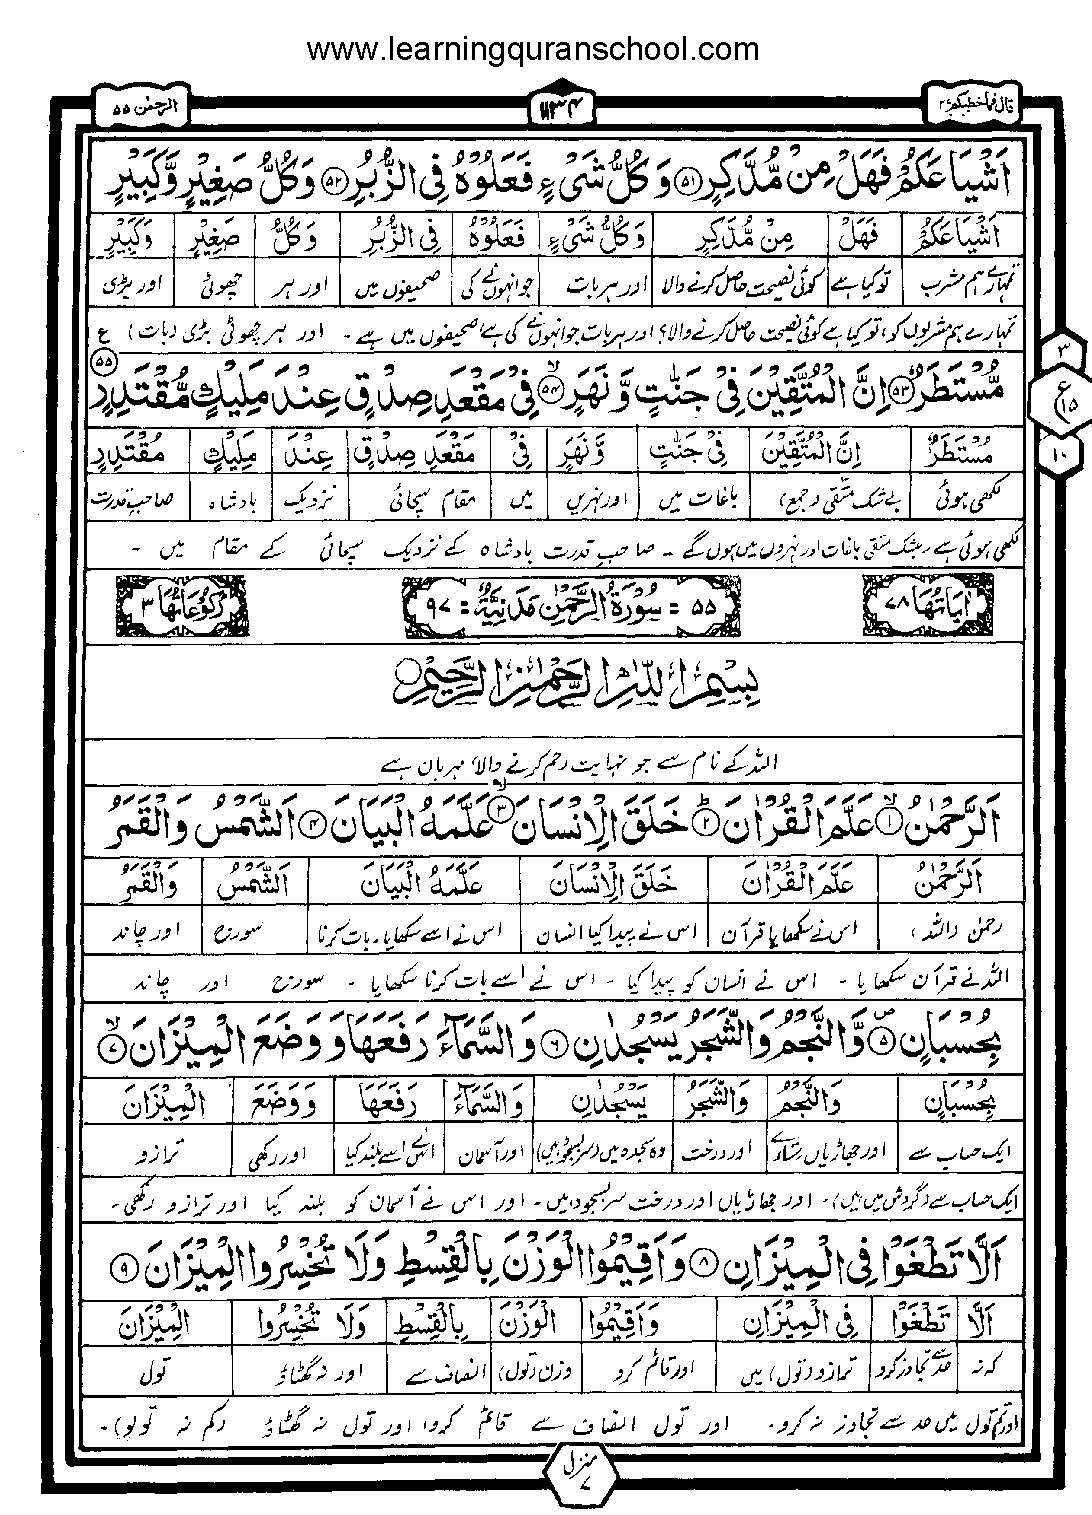 www.learningquranschool.com
قال فما خطبکم ۲۷
۱۱۳۴
الرحمٰن ۵۵
اَشْیَاعَكُمْ فَهَلْ مِنْ مُّدَّكِرٍ ﴿۵۱﴾ وَكُلُّ شَیْءٍ فَعَلُوْهُ فِی الزُّبُرِ ﴿۵۲﴾ وَكُلُّ صَغِیْرٍ وَّكَبِیْرٍ
اَشْیَاعَكُمْ فَهَلْ مِنْ مُّدَّكِرٍ وَكُلُّ شَیْءٍ فَعَلُوْهُ فِی الزُّبُرِ وَكُلُّ صَغِیْرٍ وَكَبِیْرٍ
تمہارے ہم مشرب تو کیا ہے کوئی نصیحت حاصل کرنے والا اور ہر بات جو انہوں نے کی صحیفوں میں اور ہر چھوٹی اور بڑی
تمہارے ہم مشربوں کو، تو کیا ہے کوئی نصیحت حاصل کرنے والا؟ اور ہر بات جو انہوں نے کی ہے صحیفوں میں ہے۔ اور ہر چھوٹی بڑی (بات) ع
مُّسْتَطَرٌ ﴿۵۳﴾ اِنَّ الْمُتَّقِیْنَ فِیْ جَنّٰتٍ وَّنَهَرٍ ﴿۵۴﴾ فِیْ مَقْعَدِ صِدْقٍ عِنْدَ مَلِیْكٍ مُّقْتَدِرٍ ﴿۵۵﴾
۳
ع
۱۵
۱۰
مُسْتَطَرٌ اِنَّ الْمُتَّقِیْنَ فِیْ جَنّٰتٍ وَّنَهَرٍ فِیْ مَقْعَدِ صِدْقٍ عِنْدَ مَلِیْكٍ مُقْتَدِرٍ
لکھی ہوئی بے شک متقی (جمع) باغات میں اور نہریں میں مقام سچائی نزدیک بادشاہ صاحبِ قدرت
لکھی ہوئی ہے۔ بیشک متقی باغات اور نہروں میں ہوں گے۔ صاحبِ قدرت بادشاہ کے نزدیک سچائی کے مقام میں۔
اٰیَاتُهَا ۷۸
۵۵ = سُوْرَةُ الرَّحْمٰنِ مَدَنِیَّةٌ = ۹۷
رُكُوْعَاتُهَا ۳
بِسْمِ اللّٰهِ الرَّحْمٰنِ الرَّحِیْمِ
اللہ کے نام سے جو نہایت رحم کرنے والا، مہربان ہے
اَلرَّحْمٰنُ ﴿۱﴾ عَلَّمَ الْقُرْاٰنَ ﴿۲﴾ خَلَقَ الْاِنْسَانَ ﴿۳﴾ عَلَّمَهُ الْبَیَانَ ﴿۴﴾ اَلشَّمْسُ وَالْقَمَرُ
اَلرَّحْمٰنُ عَلَّمَ الْقُرْاٰنَ خَلَقَ الْاِنْسَانَ عَلَّمَهُ الْبَیَانَ اَلشَّمْسُ وَالْقَمَرُ
رحمٰن (اللہ) اس نے سکھایا قرآن اس نے پیدا کیا انسان اس نے اسے سکھایا۔ بات کرنا سورج اور چاند
اللہ نے قرآن سکھایا۔ اس نے انسان کو پیدا کیا۔ اس نے اسے بات کرنا سکھایا۔ سورج اور چاند
بِحُسْبَانٍ ﴿۵﴾ وَّالنَّجْمُ وَالشَّجَرُ یَسْجُدٰنِ ﴿۶﴾ وَالسَّمَآءَ رَفَعَهَا وَوَضَعَ الْمِیْزَانَ ﴿۷﴾
بِحُسْبَانٍ وَالنَّجْمُ وَالشَّجَرُ یَسْجُدٰنِ وَالسَّمَآءَ رَفَعَهَا وَوَضَعَ الْمِیْزَانَ
ایک حساب سے اور جھاڑیاں اور درخت وہ سجدہ میں (سر بسجود ہیں) اور آسمان اس نے اسے بلند کیا اور رکھی ترازو
ایک حساب سے (گردش میں ہیں)۔ اور جھاڑیاں اور درخت سر بسجود ہیں۔ اور اس نے آسمان کو بلند کیا اور ترازو رکھی۔
اَلَّا تَطْغَوْا فِی الْمِیْزَانِ ﴿۸﴾ وَاَقِیْمُوا الْوَزْنَ بِالْقِسْطِ وَلَا تُخْسِرُوا الْمِیْزَانَ ﴿۹﴾
اَلَّا تَطْغَوْا فِی الْمِیْزَانِ وَاَقِیْمُوا الْوَزْنَ بِالْقِسْطِ وَلَا تُخْسِرُوا الْمِیْزَانَ
کہ نہ حد سے تجاوز کرو ترازو (تول) میں اور قائم کرو وزن (تول) انصاف سے اور نہ گھٹاؤ تول
اور تم تول میں حد سے تجاوز نہ کرو۔ اور تول انصاف سے قائم کرو اور تول نہ گھٹاؤ (کم نہ تولو)۔
منزل ۷